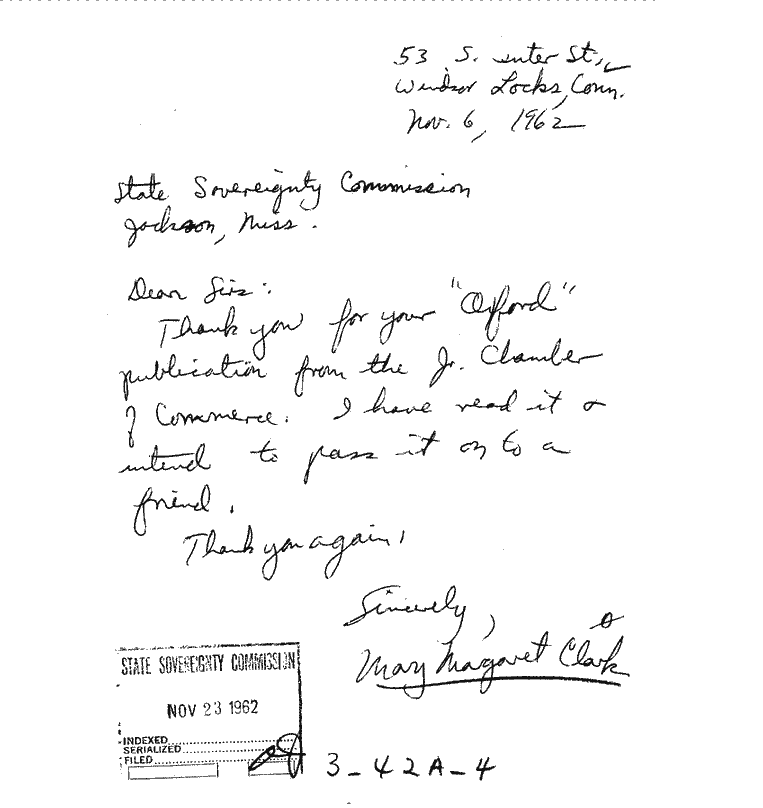 53 S. enter St.,
Windsor Locks, Conn.
Nov. 6, 1962
State Sovereignty Commission
Jackson, Miss.
Dear Sirs:
Thank you for your "Oxford"
publication from the Jr. Chamber
of Commerce. I have read it &
intend to pass it on to a
friend.
Thank you again,
Sincerely,
Mary Margaret Clark
STATE SOVEREIGNTY COMMISSION
NOV 23 1962
INDEXED
SERIALIZED
FILED
3-42A-4